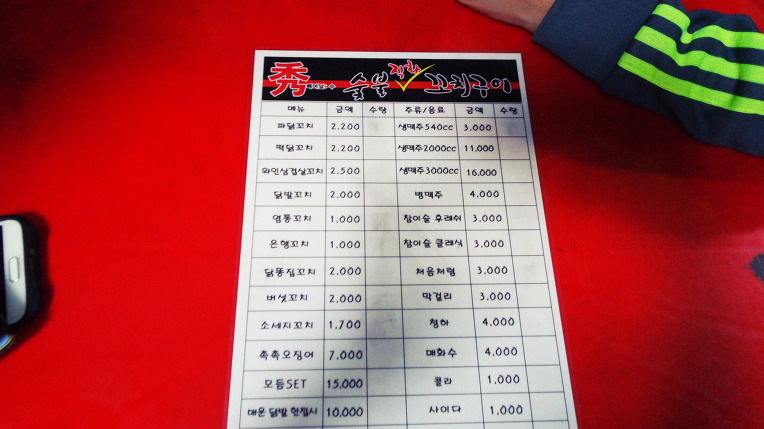 秀 숯불 직화 꼬치구이
메뉴 금액 수량 주류/음료 금액 수량
파닭꼬치 2,200 생맥주540cc 3,000
떡닭꼬치 2,200 생맥주2000cc 11,000
와인삼겹살꼬치 2,500 생맥주3000cc 16,000
닭발꼬치 2,000 병맥주 4,000
염통꼬치 1,000 참이슬 후레쉬 3,000
은행꼬치 1,000 참이슬 클래식 3,000
닭똥집꼬치 2,000 처음처럼 3,000
버섯꼬치 2,000 막걸리 3,000
소세지꼬치 1,700 청하 4,000
촉촉오징어 7,000 매화수 4,000
모듬SET 15,000 콜라 1,000
매운 닭발 한접시 10,000 사이다 1,000